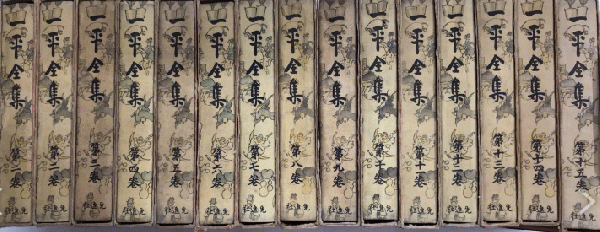 一平全集 第一卷 先進社
一平全集 第二卷 先進社
一平全集 第三卷 先進社
一平全集 第四卷 先進社
一平全集 第五卷 先進社
一平全集 第六卷 先進社
一平全集 第七卷 先進社
一平全集 第八卷 先進社
一平全集 第九卷 先進社
一平全集 第十卷 先進社
一平全集 第十一卷 先進社
一平全集 第十二卷 先進社
一平全集 第十三卷 先進社
一平全集 第十四卷 先進社
一平全集 第十五卷 先進社